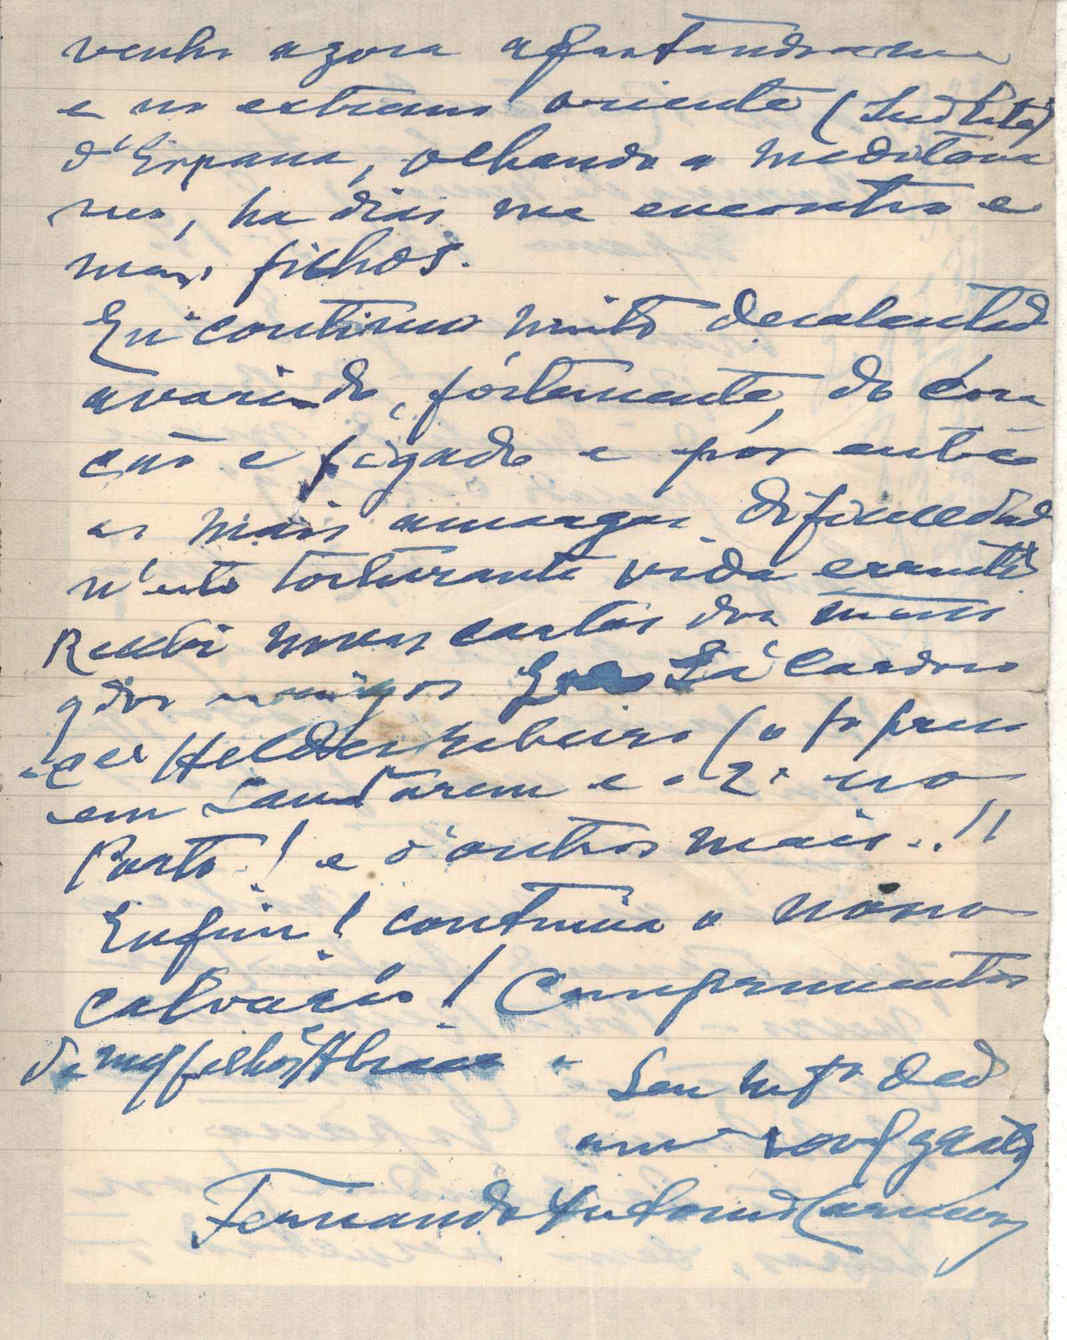 venho agora afastando-me
e no extremo oriente (
d'Espana, olhando o mediterra
neo, ha dias me encontro e
meus filhos.
Eu continuo muito desalentado
avariado, fortemente, do cora
ção e figado e por entre
as mais amargas dificuldad
n'esta torturante vida errante
Recebi novas cartas dos meus
q dos amigos Sá Cardoso
e Helder Ribeiro (o 1º preso
em Santarem e o 2º no
Porto! e d'outros mais..!!
Enfim! continua o nosso
calvario! Comprimentos
de meus filhos Abraça o
Seu mtº ded
amº e grato
Fernando